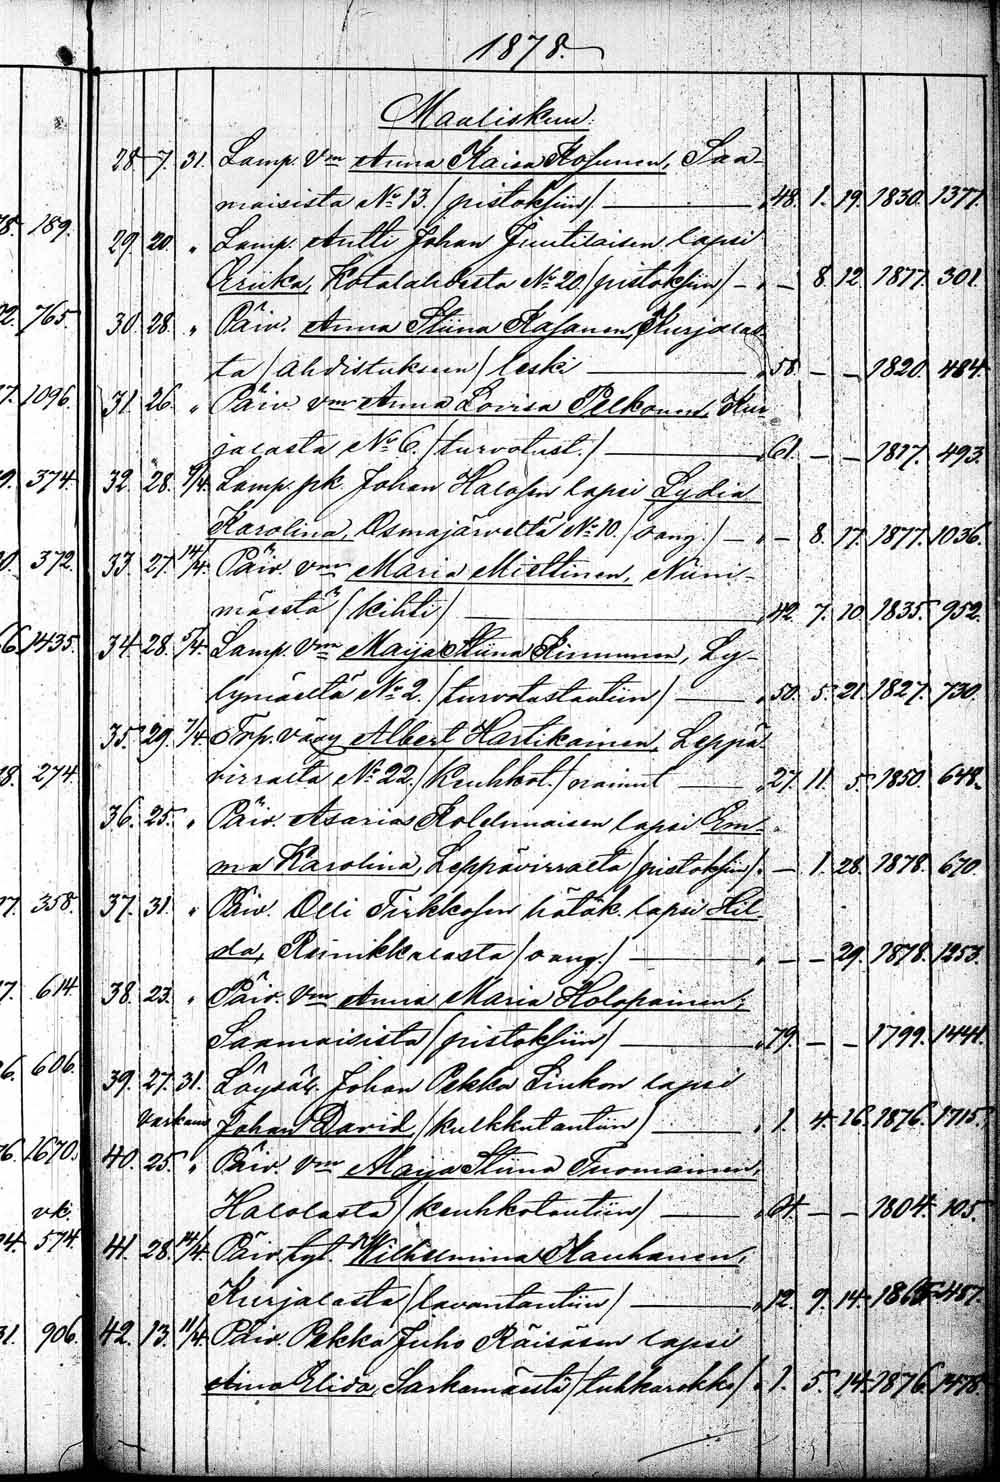 1878.
Maaliskuu.
28. 7. 31. Lamp. Vm Anna Kaisa Kosunen, Saa-
moisista No 13. /pistoksiin/ — 48. 1. 19. 1830. 1377.
78. 189.
29. 20. " Lamp. Antti Johan Juutilaisen lapsi
Eriika, Kotalahdesta No 20 /pistoksiin/ — " — 8. 12. 1877. 301.
72. 765.
30. 28. " Päiv. Anna Stiina Kasanen, Kurjalas-
ta /ahdistukseen/ leski — 58. — — 1820. 484.
7. 1096.
31. 26. " Päiv. vm Anna Lovisa Pelkonen, Kur-
jalasta No 6. /turvotust./ — 61. — — 1817. 493.
9. 374.
32. 28. 9/4. Lamp. pk. Johan Halosen lapsi Lydia
Karolina, Osmajärveltä No 10. /vang./ — " — 8. 17. 1877. 1036.
0. 372.
33. 27. 14/4. Päiv. vm Maria Miettinen, Niini-
mäestä /kihti/ — 42. 7. 10. 1835. 952.
66. 1435.
34. 28. 5/4. Lamp. Vm Maija Stiina Kinnunen, Ly-
lymäeltä No 2. /turvotustautiin/ — 50. 5. 21. 1827. 730.
35. 29. 7/4. Trp. vävy Albert Hartikainen, Leppä-
virralta No 22. /keuhkot./ nainut — 27. 11. 5. 1850. 648.
8. 274.
36. 25. " Päiv. Asarias Kolehmaisen lapsi Em-
ma Karolina, Leppävirralta /pistoksiin/ " — 1. 28. 1878. 670.
7. 358.
37. 31. " Päiv. Olli Tirkkosen lapsi Hil-
da, Reinikkalasta /vang./ — " — — 29. 1878. 1253.
7. 614.
38. 23. " Päiv. Vm Anna Maria Holopainen,
Saamaisista /pistoksiin/ — 79. — — 1799. 1441.
6. 606.
39. 27. 31. Löysäl. Johan Pekka Sinkon lapsi
Varkaus Johan David, /kulkkutautiin/ — " 1. 4. 16. 1876. 1715.
76. 1670.
40. 25. " Päiv. Vm Maija Stiina Tuomainen,
Halolasta /keuhkotautiin/ — — — 1804. 105.
vk.
74. 574.
41. 28. 14/4. Päiv. tyt. Wilhelmina Kauhanen,
Kurjalasta /lavantautiin/ — 12. 9. 14. 1865. 487.
31. 906.
42. 13. 11/4. Päiv. Pekka Juho Räisäsen lapsi
Aina Elida, Sarkamäestä /tuhkarokko/ " 1. 5. 14. 1876. 1478.